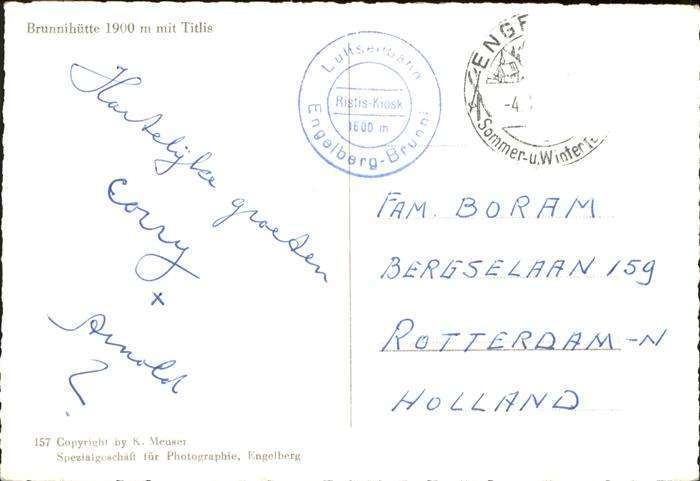 Brunnihütte 1900 m mit Titlis
Luftseilbahn
Ristis-Kiosk
1600 m
Engelberg-Brunni
ENGE
-4.
Sommer-u. Winter
Hartelijke groeten
Corry
x
Arnold
FAM. BORAM
BERGSELAAN 159
ROTTERDAM-N
HOLLAND
157 Copyright by K. Meuser
Spezialgeschäft für Photographie, Engelberg